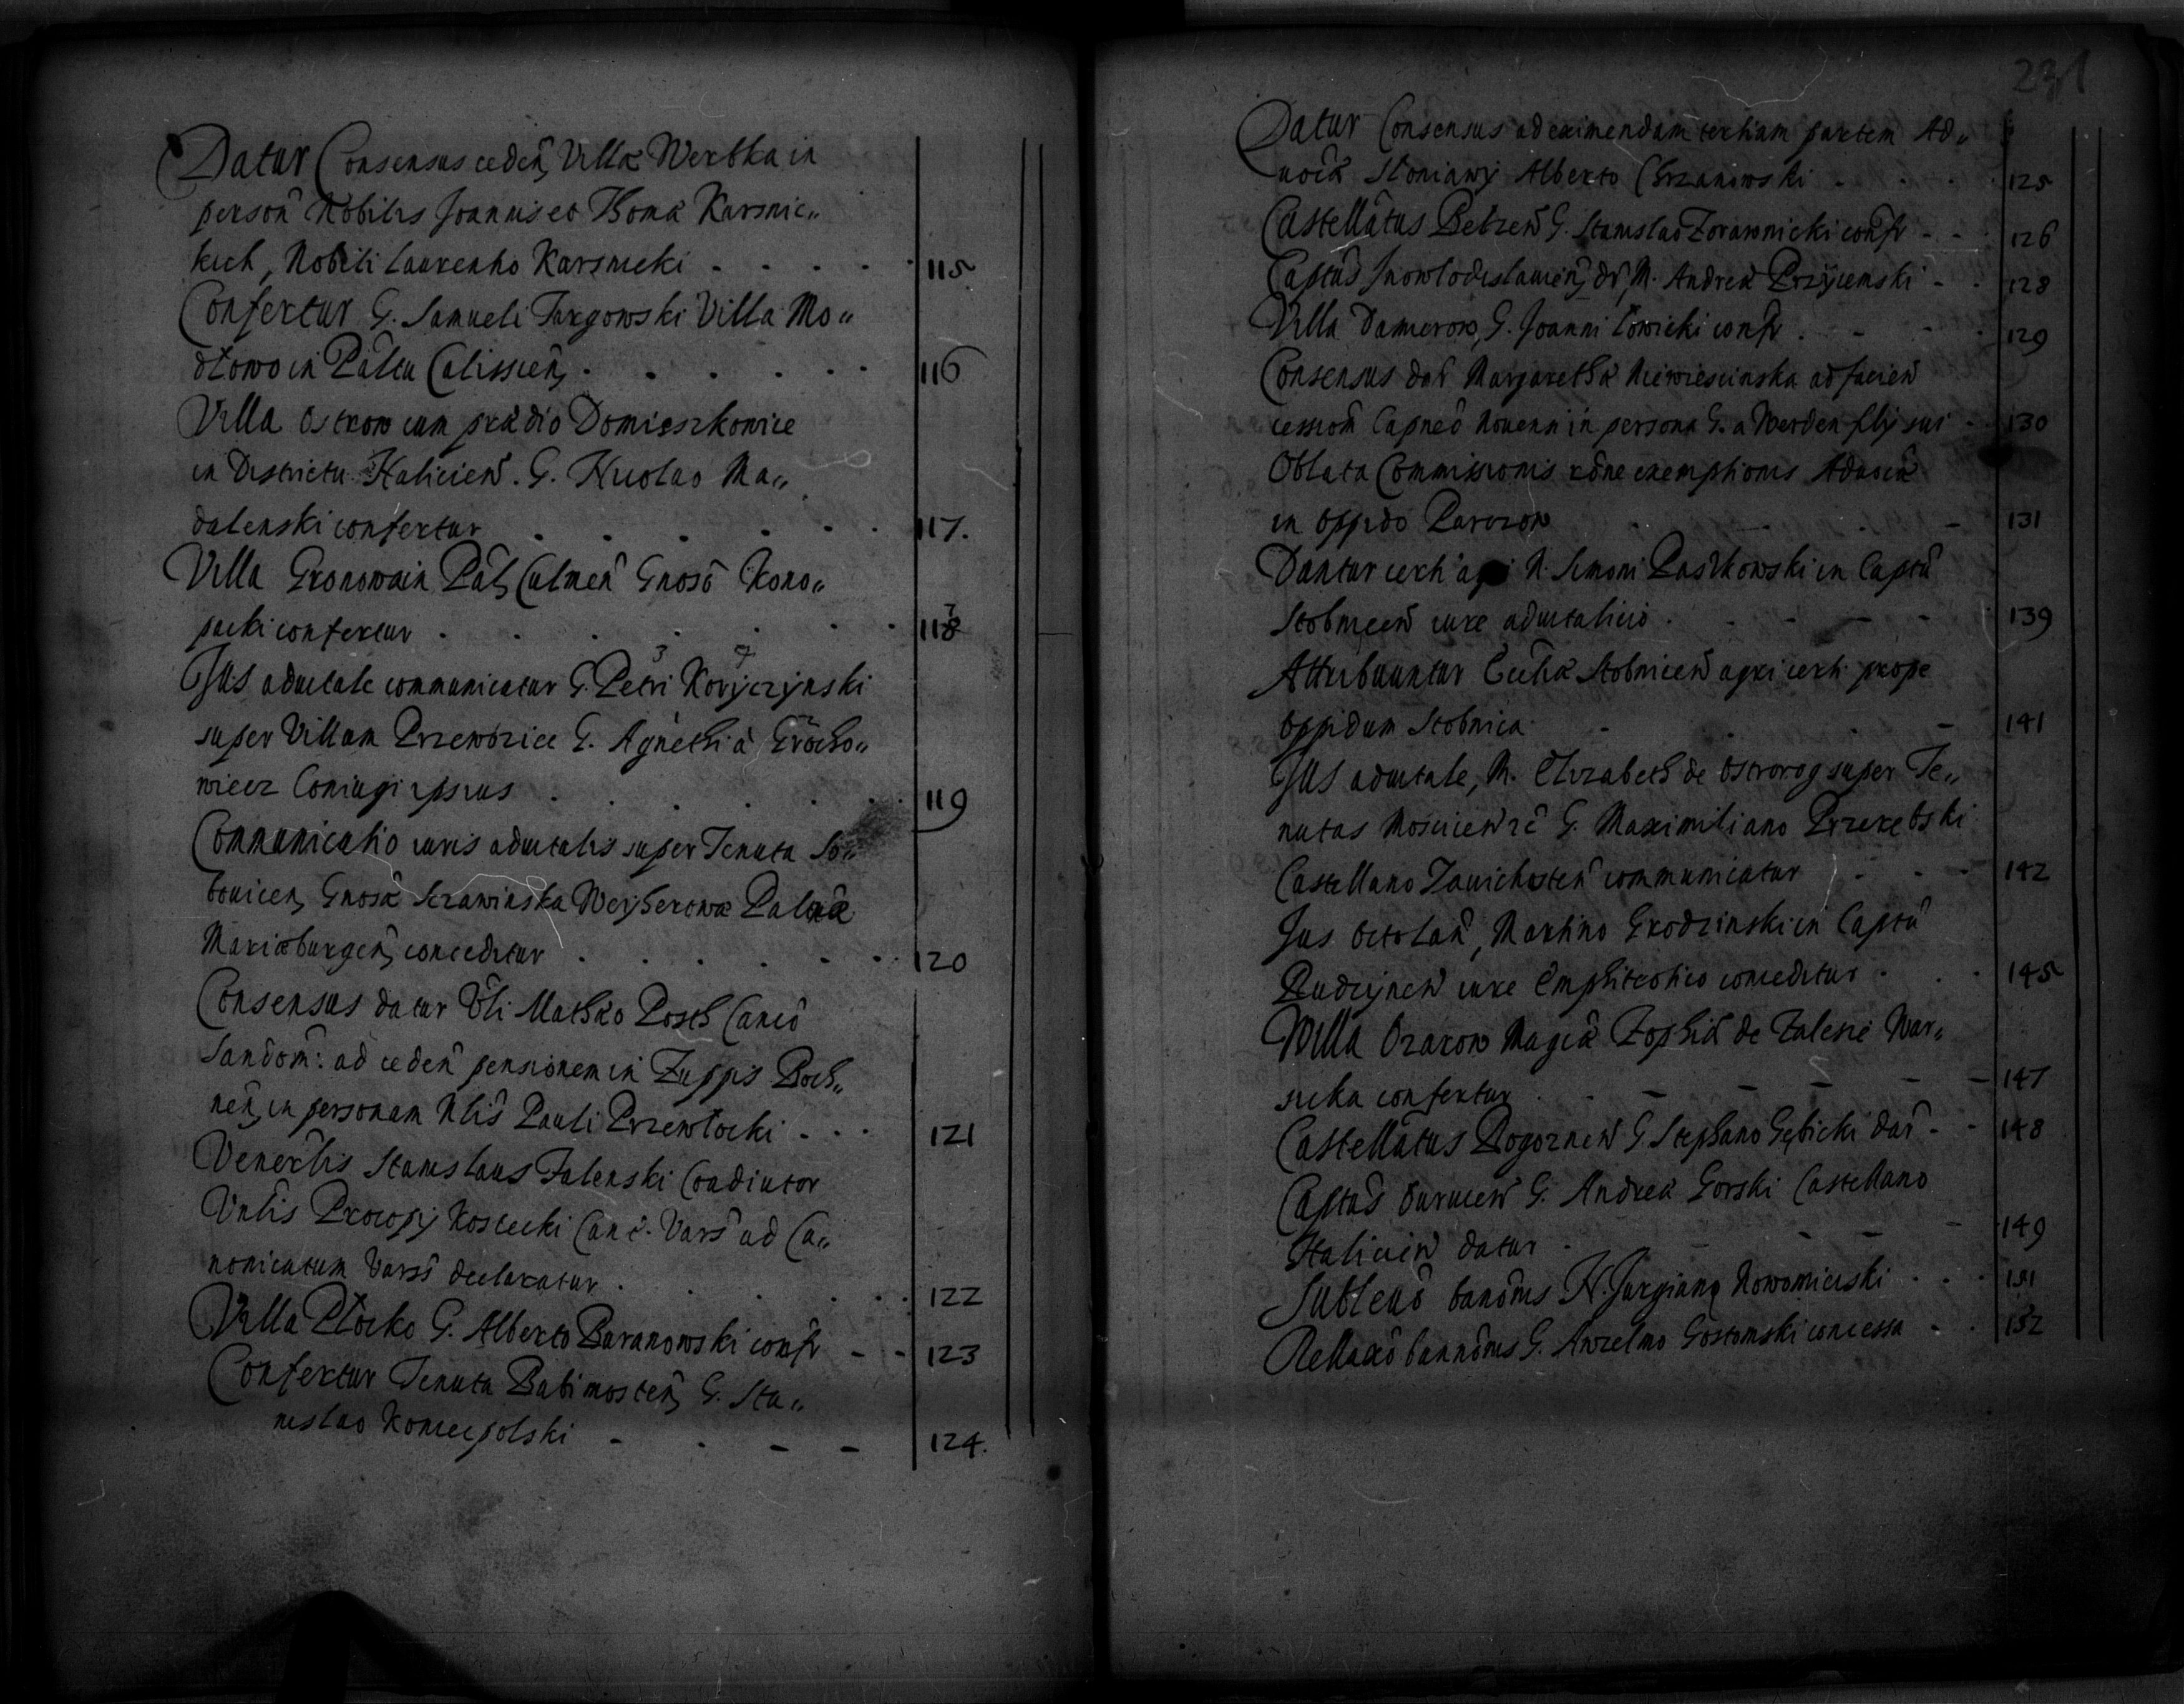 Datur Consensus ceden, Villæ Werbka in
person Nobilis Joannis et Thomæ Karsnic„
kich, Nobili Laurentio Karsnicki 115
Confertur G. Samueli Targowski Villa Mo„
dłowo in Paltu Calissien, 116
Villa Ostrow cum prædio Domieszkowice
in Districtu Halicien. G. Nicolao Ma„
dalenski confertur 117.
Villa Gronowa in Pal, Culmen Gnoso Kono„
packi confertur 118
Jus aduitale communicatur G. Petri Koryczynski
super Villam Przewozice G. Agnethi a Grocho„
wicez Coniugi ipsius 119
Communicatio iuris aduitalis super Tenuta So„
bouicen, Gnosæ Sczawinska Weyherowæ Palnæ
Mariæburgen, conceditur 120
Consensus datur Vli Mathæo Posth Canco
Sandom: ad ceden pensionem in Zuppis Boch„
nen, in personam Nlis Pauli Przewłocki 121
Venerlis Stanislaus Falenski Coadiutor
Vnlis Procopij Koscecki Canc. Vars ad Ca„
nonicatum Vars declaratur 122
Villa Płocko G. Alberto Baranowski confr 123
Confertur Tenuta Babimosten, G. Sta„
nislao Koniecpolski 124.
231
Datur Consensus ad eximendam tertiam partem Ad„
uocæ Stoniawy Alberto Chrzanowski 125
Castellatus Belzen G. Stanislao Zorawnicki confr 126
Captus Jnowlodislauien, dr, M. Andreæ Przyiemski 128
Villa Damerow, G. Joanni Łowicki confr 129
Consensus datr Margarethæ Niewiescinska ad facien
cession Captneo Nouenn in persona G. a Werden filij sui 130
Oblata Commissionis rone exemptionis Aduocæ
in oppido Parczow 131
Dantur certi agri N. Simoni Paszkowski in Captu
Stobnicen iure aduitalicio 139
Attribuuntur Ecclæ Stobnicen agri certi prope
oppidum Stobnica 141
Jus aduitale, M. Elizabeth de Ostrorog super Te„
nutas G. Maximiliano Przerebski
Castellano Zauichosten communicatur 142
Jus Martino Grodzinski in Captu
iure Emphiteotico conceditur 145
Willa Ozarow Magcæ Zophiæ de Zalesie War„
sicka confertur 147
Castellatus Rogoznen G. Stephano Gębicki dar 148
Captus G. Andreæ Gorski Castellano
Halicien datur 149
Subleuo banoms N. Jurgiano Nowomieiski 151
Rellaxo bannoms G. Anzelmo Gostomski concessa 152